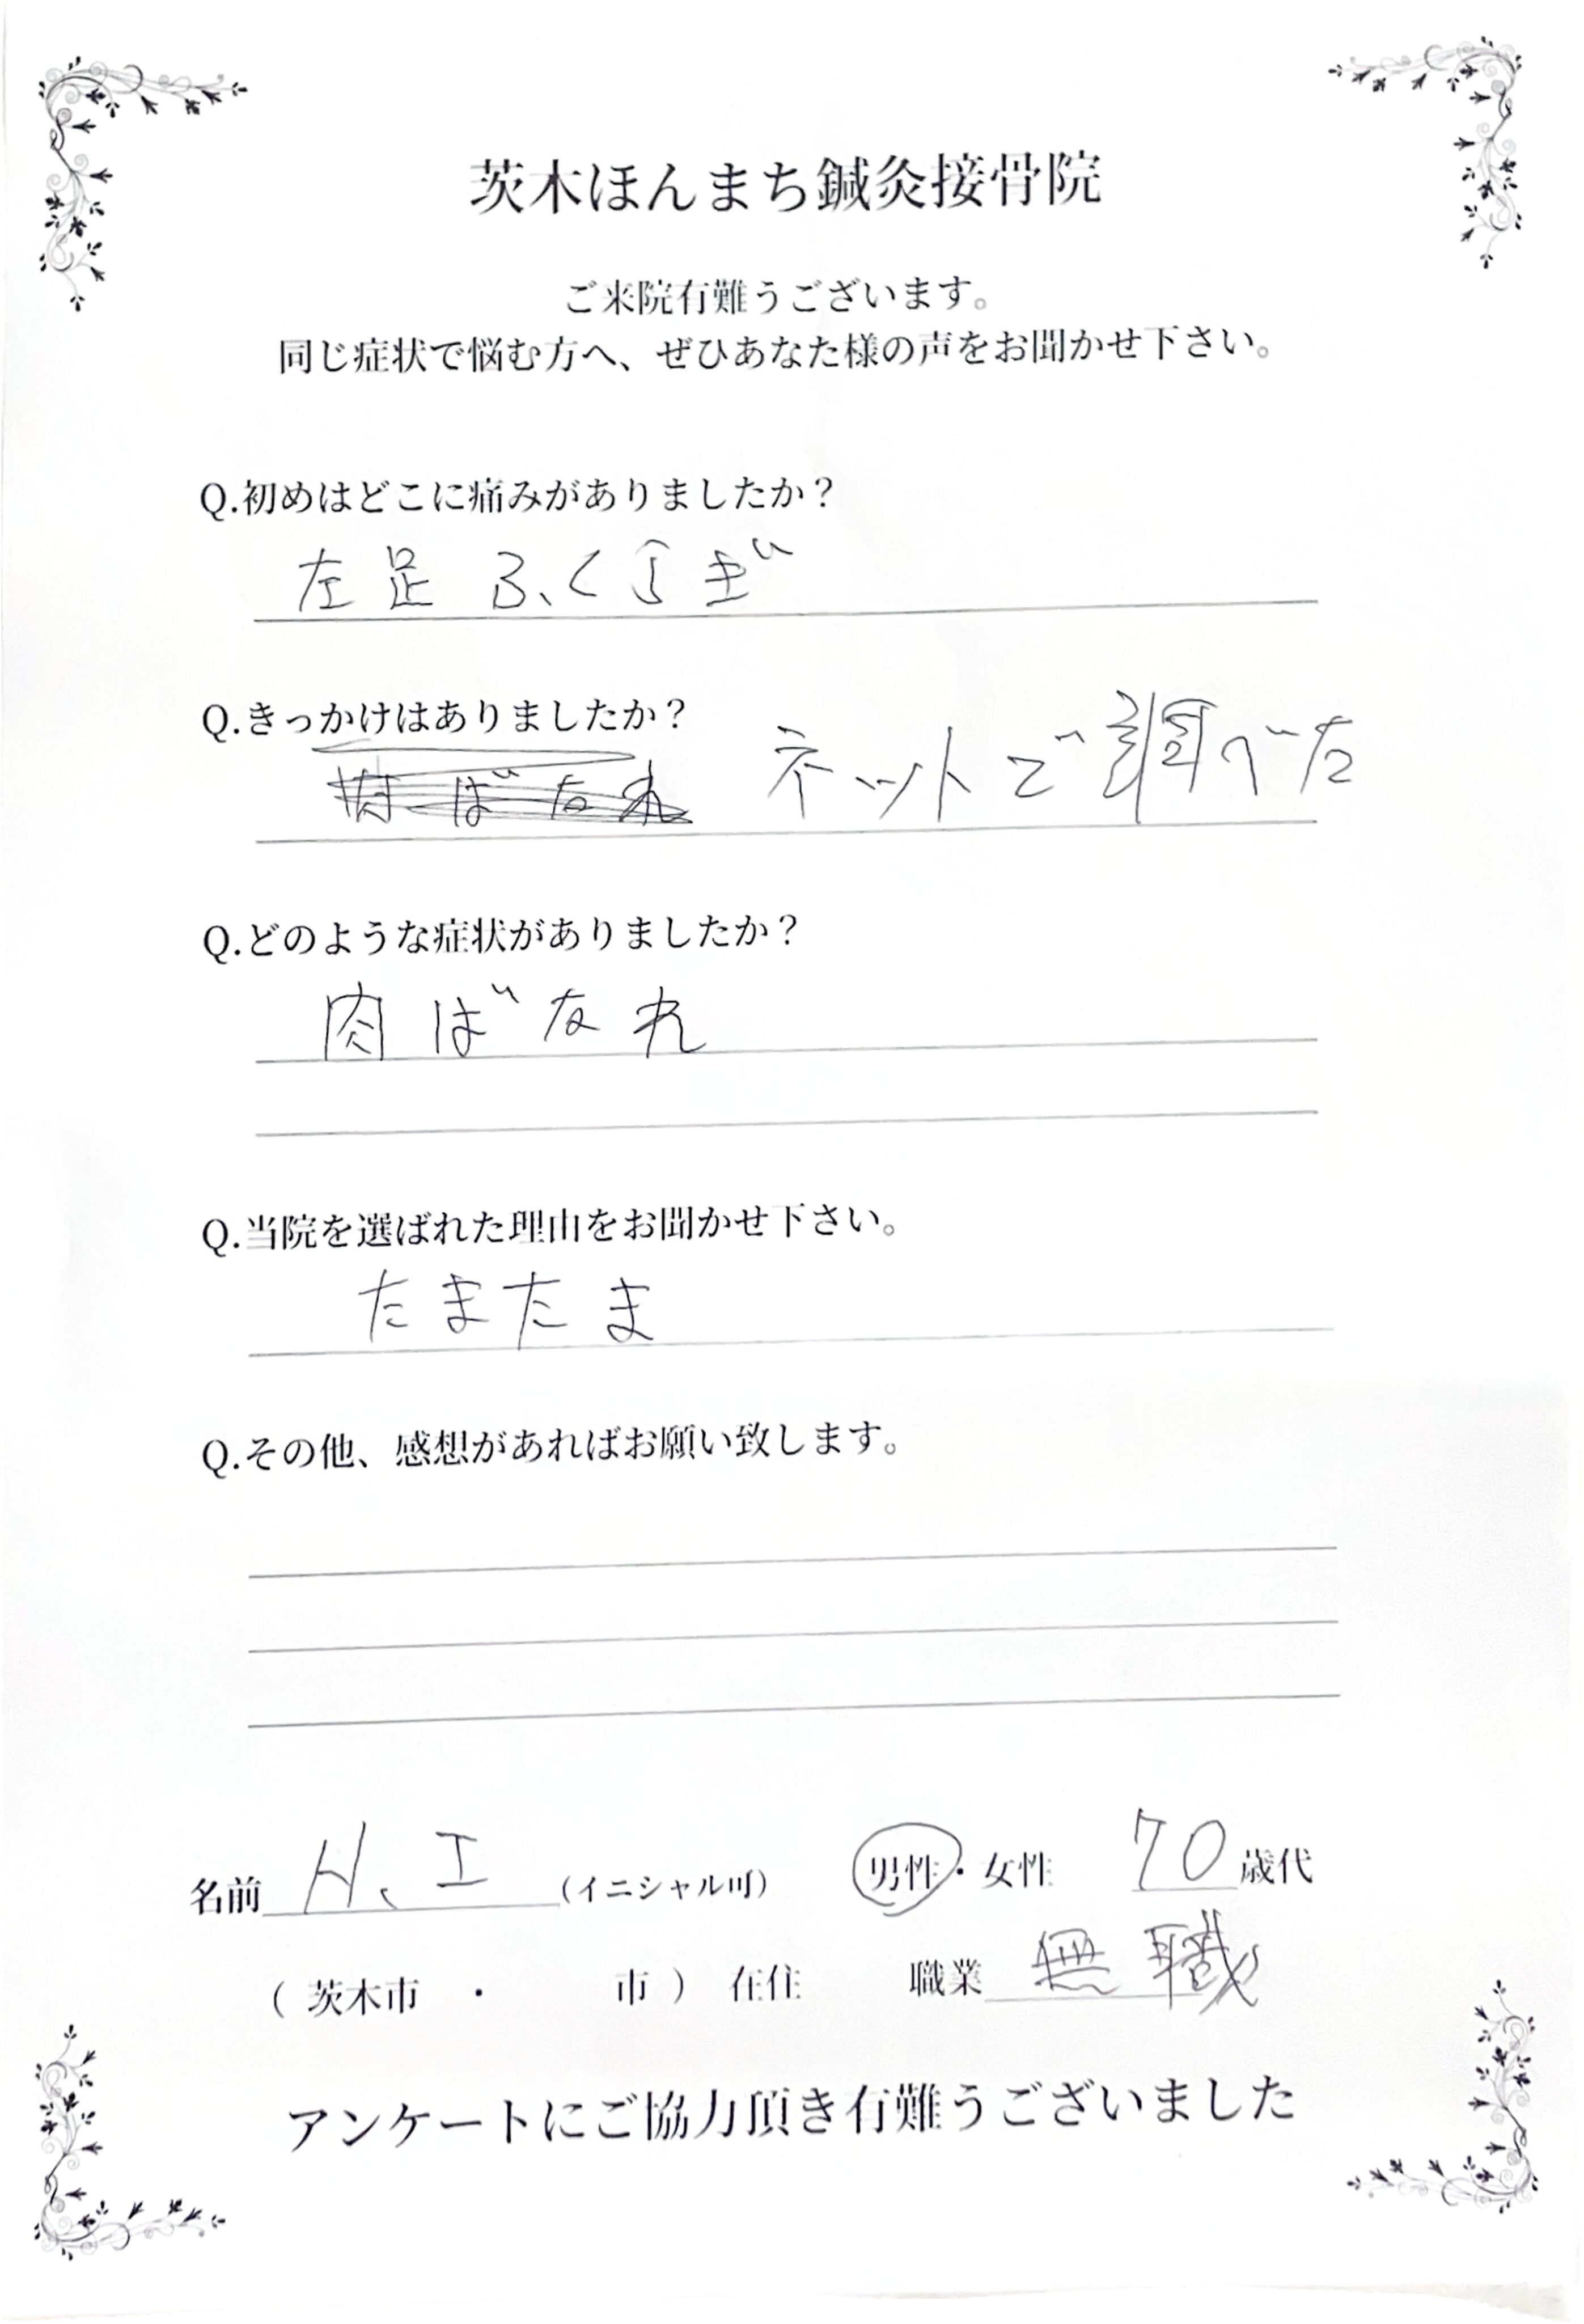 茨木ほんまち鍼灸接骨院
ご来院有難うございます。
同じ症状で悩む方へ、ぜひあなた様の声をお聞かせ下さい。
Q.初めはどこに痛みがありましたか？
左足 ふくらぎ
Q.きっかけはありましたか？
肉ばなれ ネットで調べた
Q.どのような症状がありましたか？
肉ばなれ
Q.当院を選ばれた理由をお聞かせ下さい。
たまたま
Q.その他、感想があればお願い致します。
名前 H、I （イニシャル可） 男性・女性 70 歳代
（ 茨木市 ・ 市 ） 在住 職業 無職
アンケートにご協力頂き有難うございました